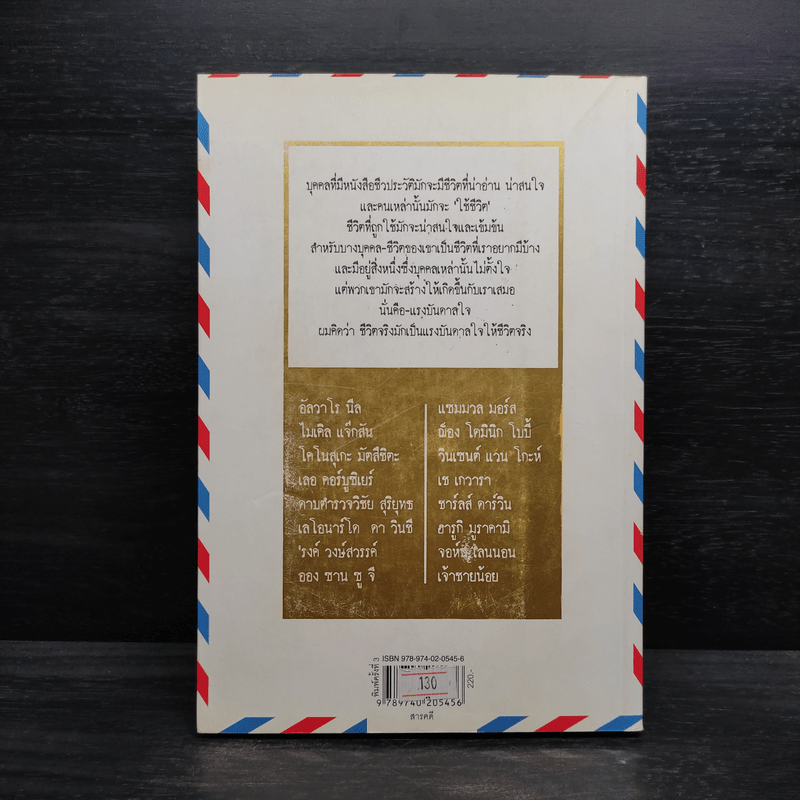 บุคคลที่มีหนังสือชีวประวัติมักจะมีชีวิตที่น่าอ่าน น่าสนใจ
และคนเหล่านั้นมักจะ 'ใช้ชีวิต'
ชีวิตที่ถูกใช้มักจะน่าสนใจและเข้มข้น
สำหรับบางบุคคล-ชีวิตของเขาเป็นชีวิตที่เราอยากมีบ้าง
และมีอยู่สิ่งหนึ่งซึ่งบุคคลเหล่านั้นไม่ตั้งใจ
แต่พวกเขามักจะสร้างให้เกิดขึ้นกับเราเสมอ
นั่นคือ-แรงบันดาลใจ
ผมคิดว่า ชีวิตจริงมักเป็นแรงบันดาลใจให้ชีวิตจริง
อัลวาโร นีล
ไมเคิล แจ็กสัน
โคโนสุเกะ มัตสึชิตะ
เลอ คอร์บูซิเยร์
ดาบตำรวจวิชัย สุริยุทธ
เลโอนาร์โด ดา วินชี
'รงค์ วงษ์สวรรค์
ออง ซาน ซู จี
แซมมวล มอร์ส
ฌ็อง โดมินิก โบบี้
วินเซนต์ แวน โกะห์
เช เกวารา
ชาร์ลส์ ดาร์วิน
ฮารูกิ มูราคามิ
จอห์น เลนนอน
เจ้าชายน้อย
พิมพ์ครั้งที่ 3
ISBN 978-974-02-0545-6
130
220.-
9 789740 205456
สารคดี